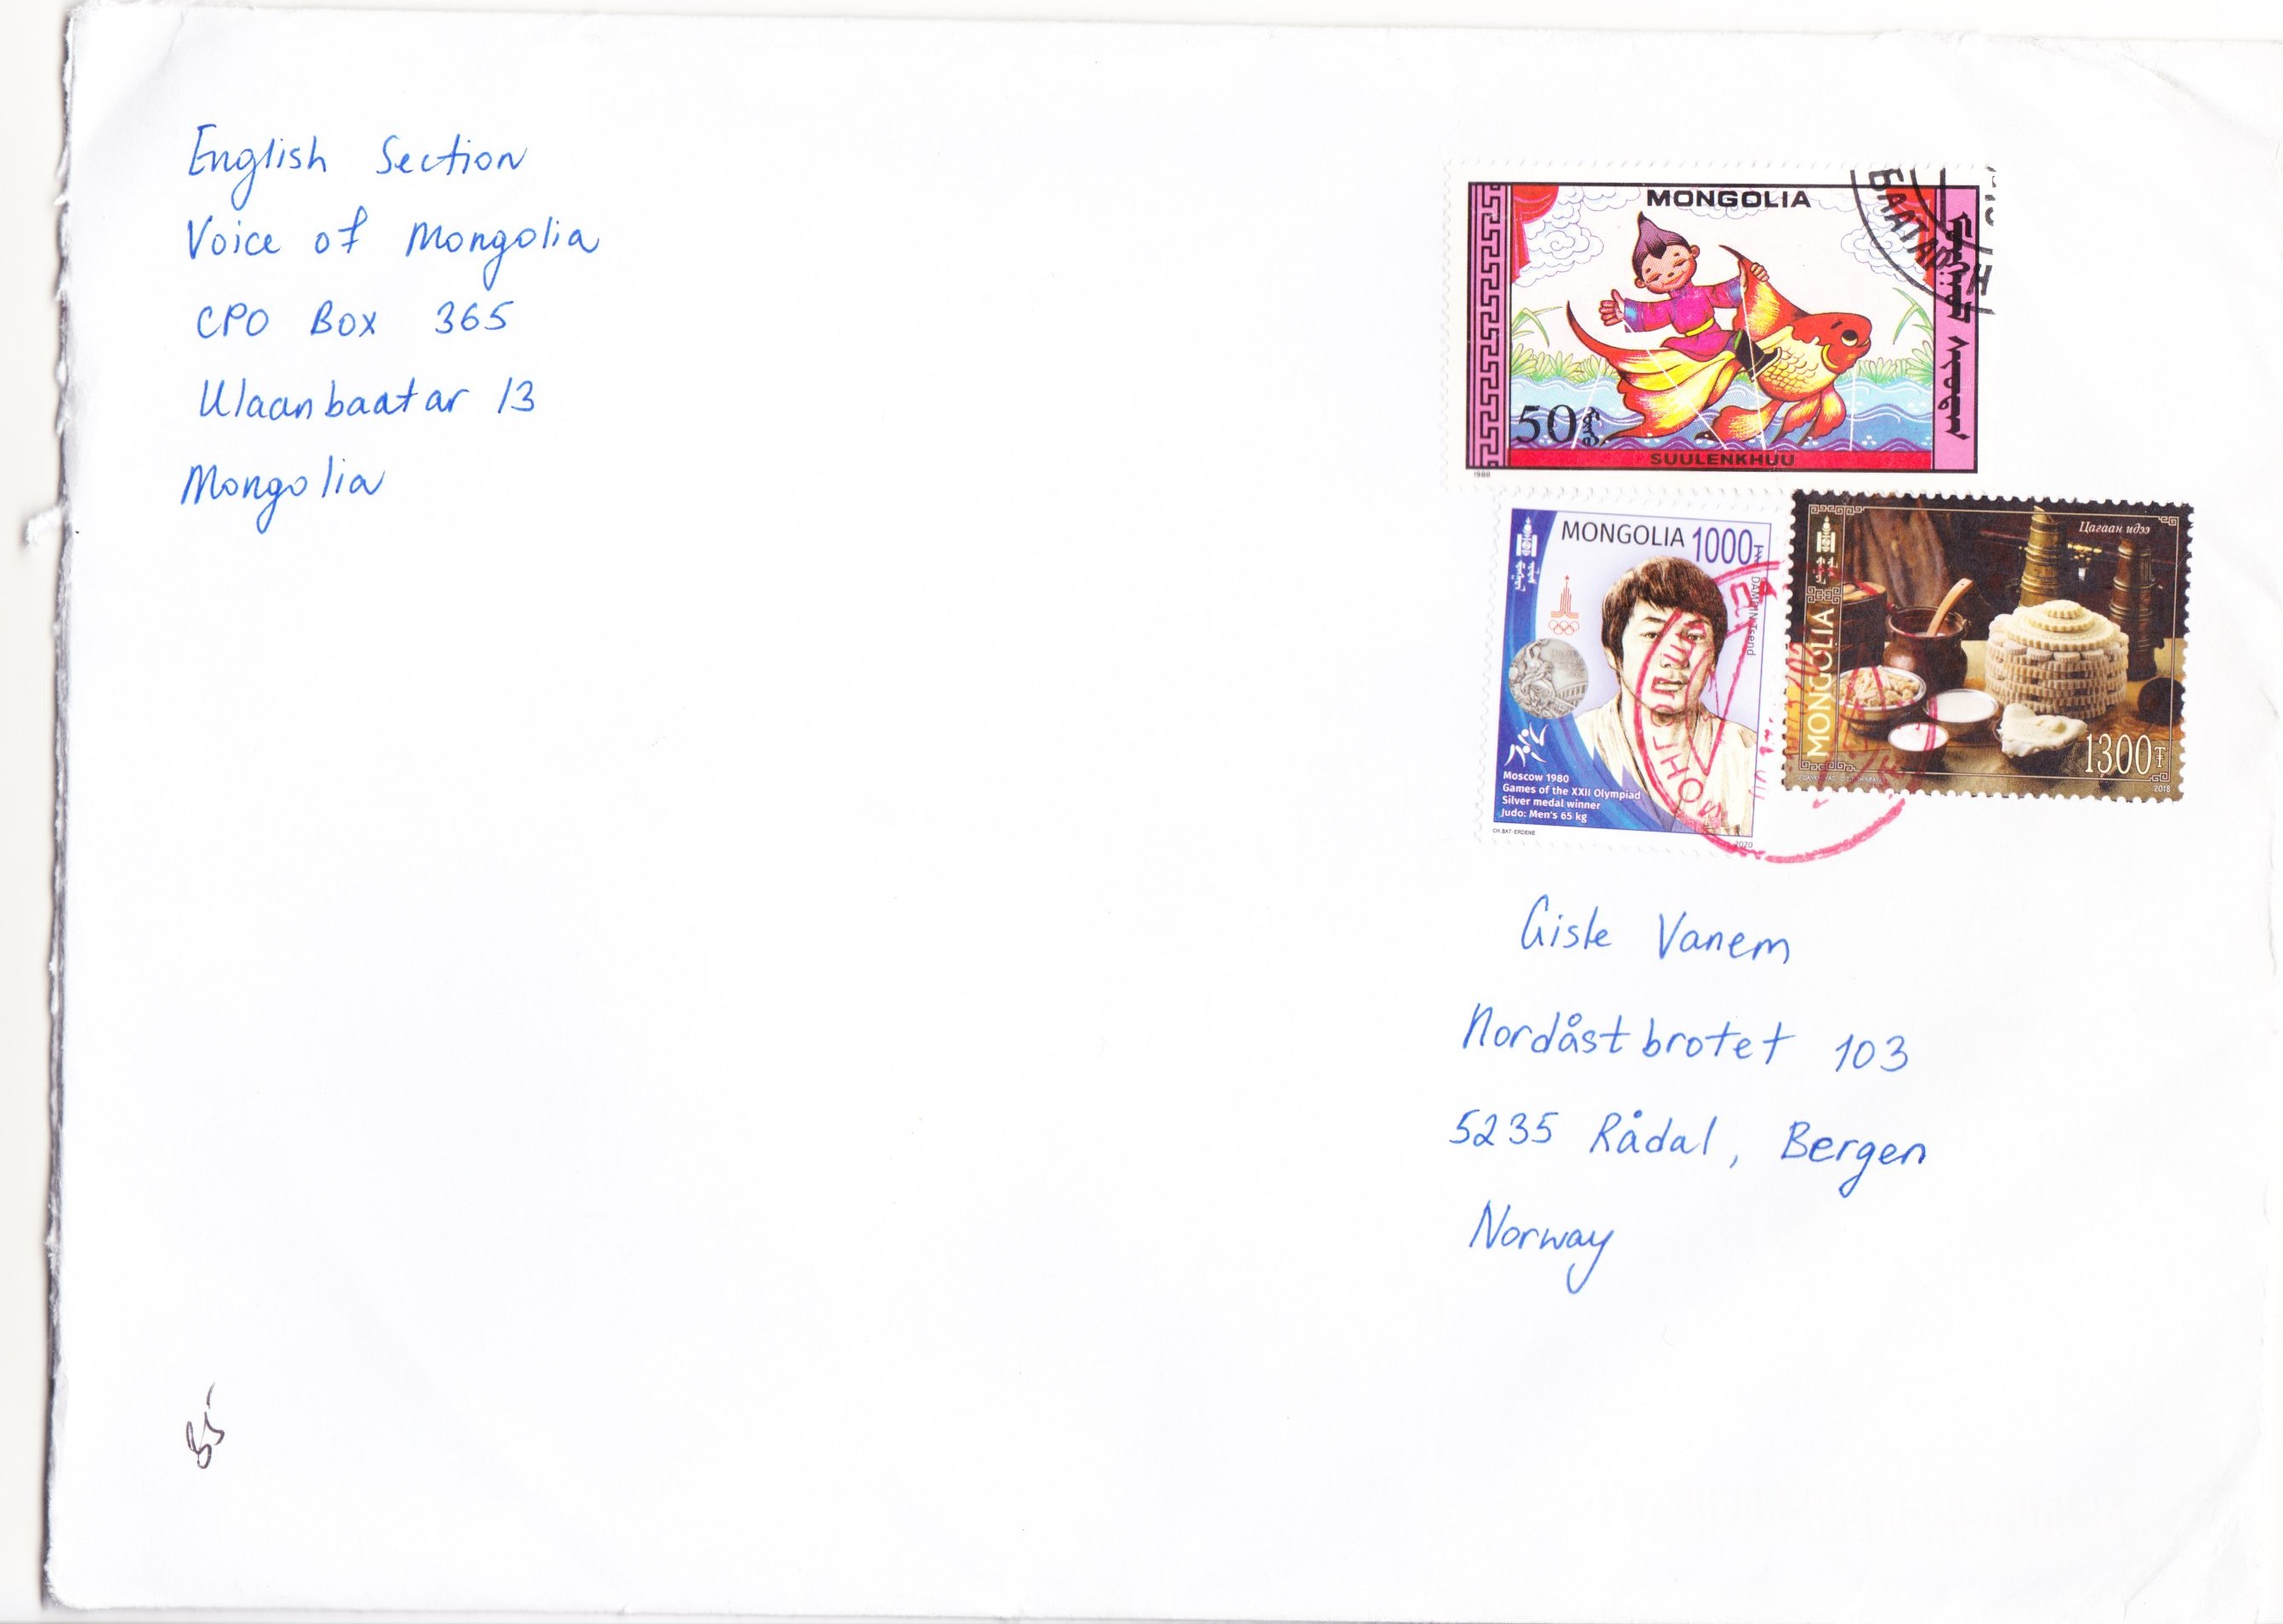 English Section
Voice of Mongolia
CPO Box 365
Ulaanbaatar 13
Mongolia
MONGOLIA
50
SUULENKHUU
1988
БААТАР
MONGOLIA 1000₮
DAMDIN Tsend
Moscow 1980
Games of the XXII Olympiad
Silver medal winner
Judo: Men's 65 kg
CH.BAT-ERDENE
2020
Цагаан идээ
MONGOLIA
1300₮
2018
Gisle Vanem
Nordåstbrotet 103
5235 Rådal, Bergen
Norway